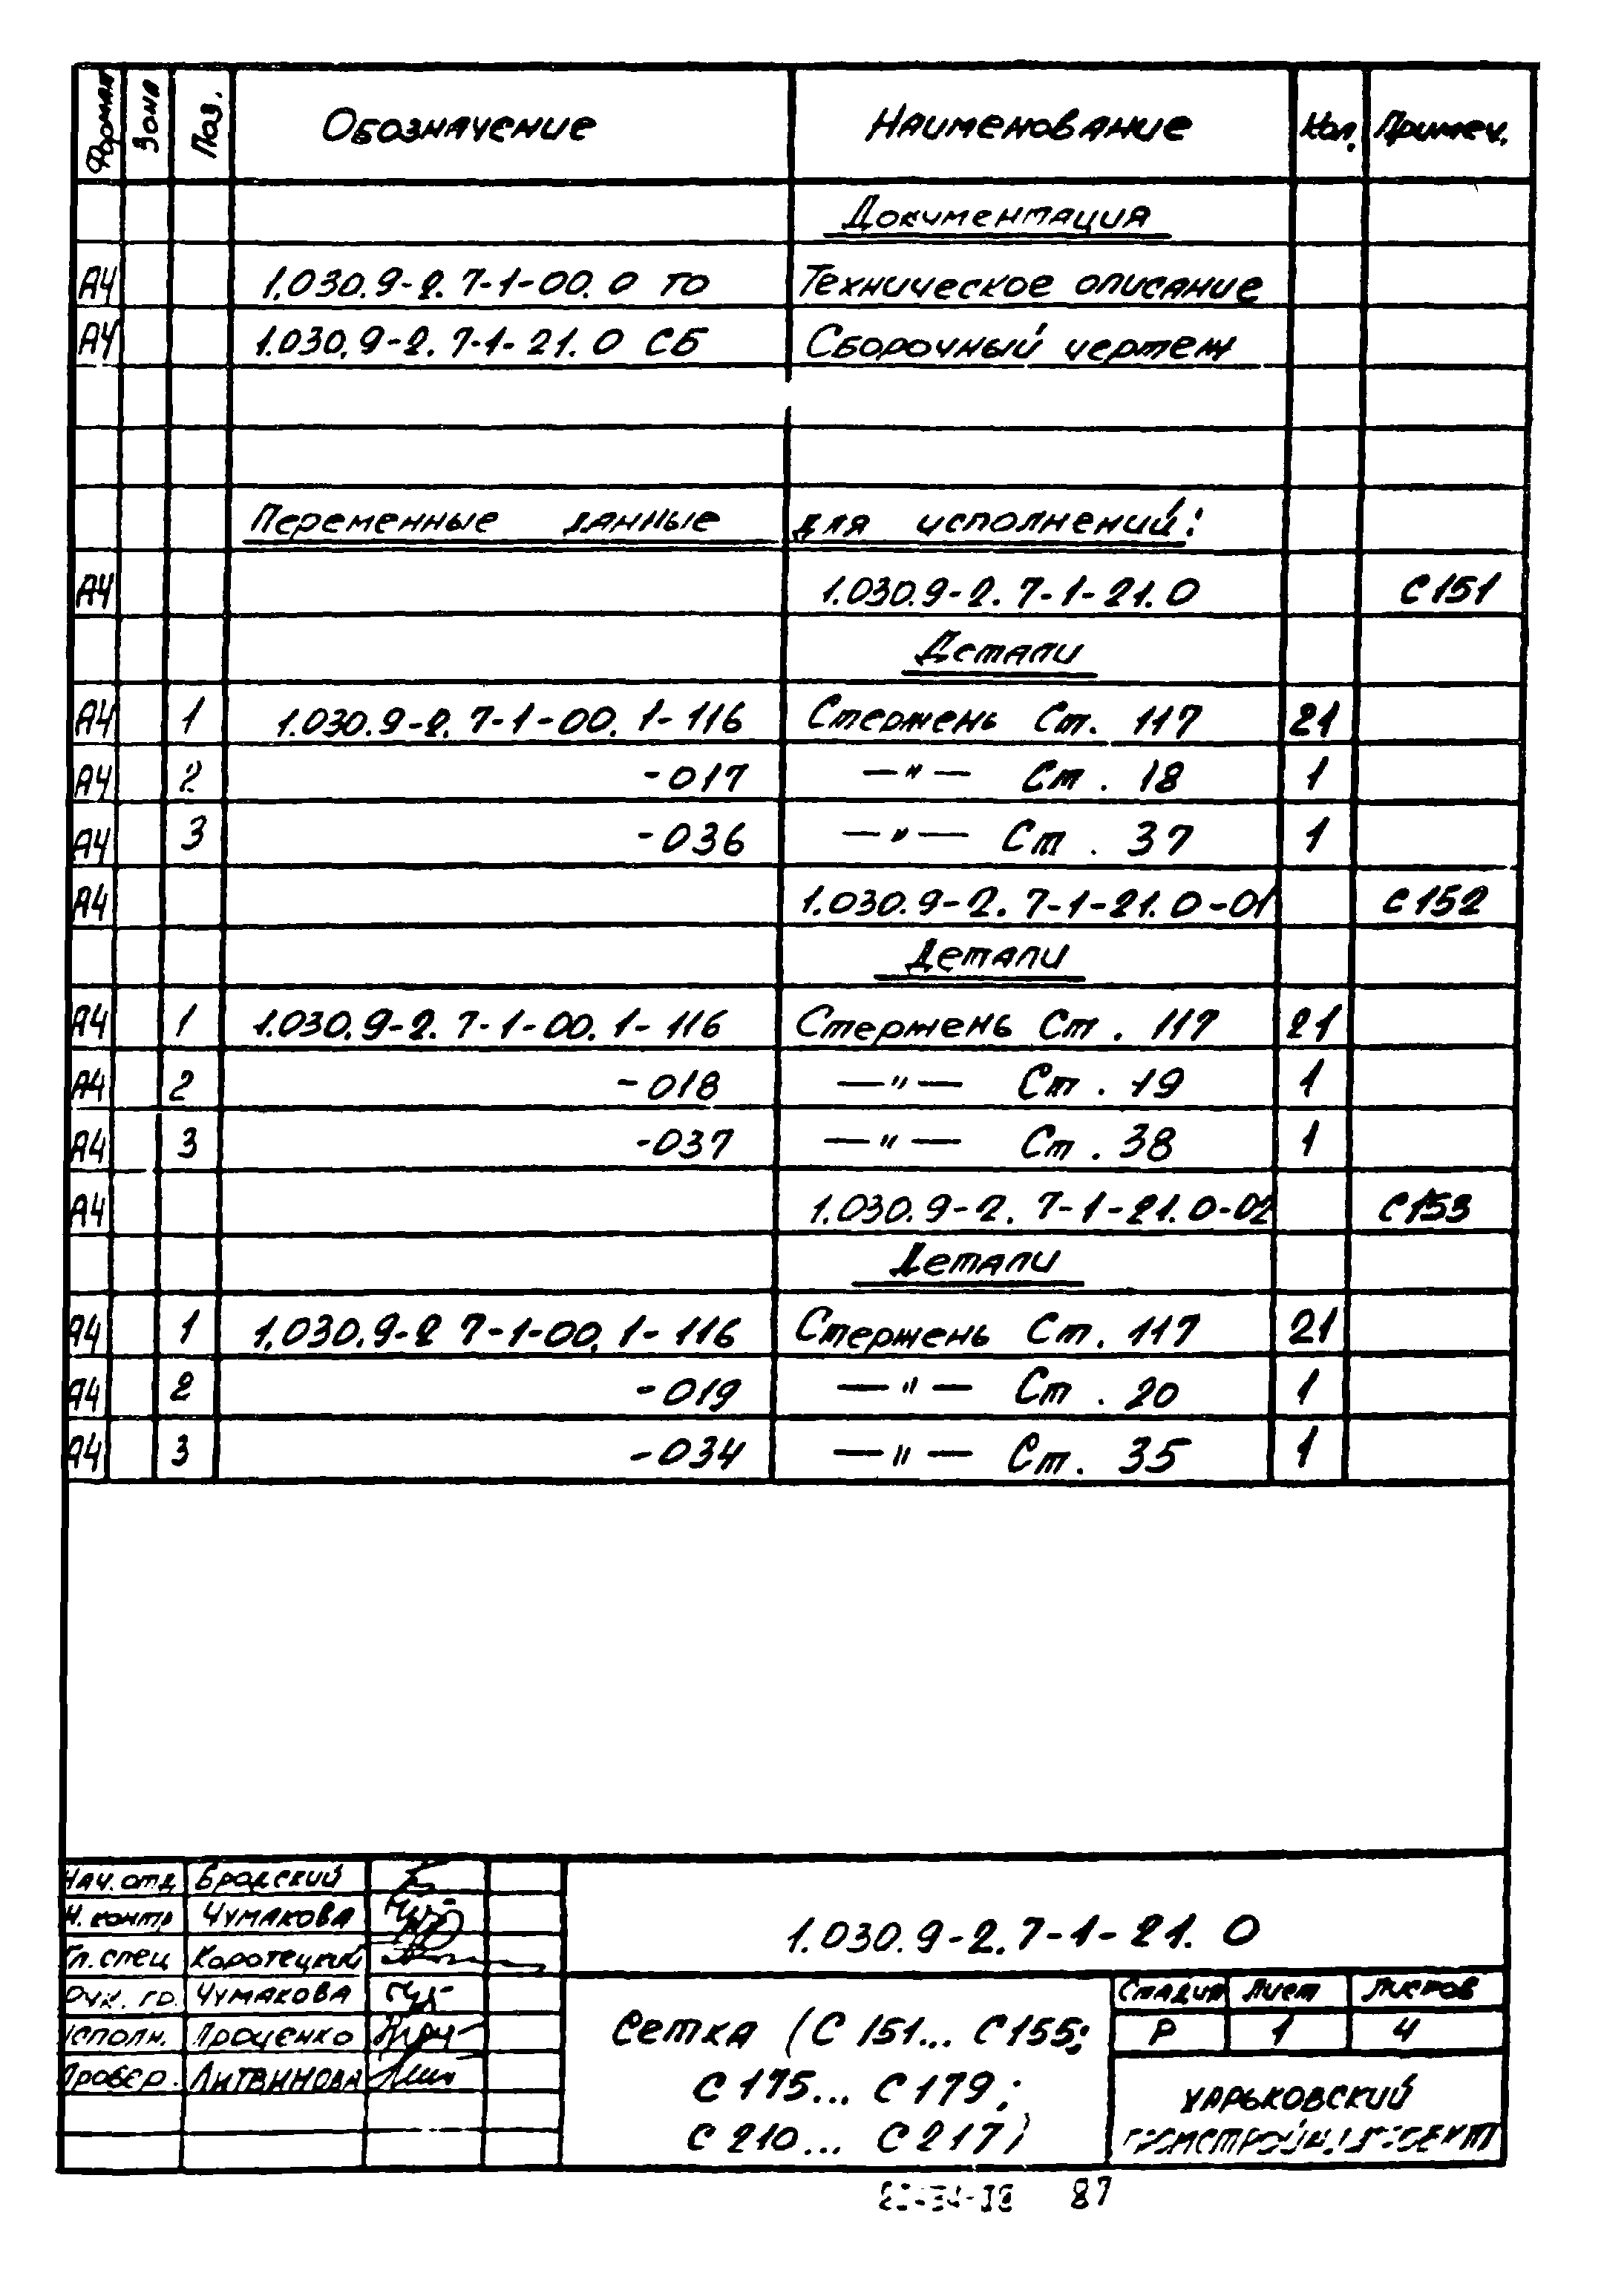 Формат Зона Поз. Обозначение Наименование Кол. Примеч.
Документация
А4 1.030.9-2.7-1-00.0 ТО Техническое описание
А4 1.030.9-2.7-1-21.0 СБ Сборочный чертеж
Переменные данные для исполнений:
А4 1.030.9-2.7-1-21.0 С151
Детали
А4 1 1.030.9-2.7-1-00.1-116 Стержень Ст. 117 21
А4 2 -017 —"— Ст. 18 1
А4 3 -036 —"— Ст. 37 1
А4 1.030.9-2.7-1-21.0-01 С152
Детали
А4 1 1.030.9-2.7-1-00.1-116 Стержень Ст. 117 21
А4 2 -018 —"— Ст. 19 1
А4 3 -037 —"— Ст. 38 1
А4 1.030.9-2.7-1-21.0-02 С153
Детали
А4 1 1.030.9-2 7-1-00.1-116 Стержень Ст. 117 21
А4 2 -019 —"— Ст. 20 1
А4 3 -034 —"— Ст. 35 1
Нач. отд Бродский
Н. контр Чумакова
Гл. спец Коротецкий
Рук. гр. Чумакова
Исполн. Проценко
Провер. Литвинова
1.030.9-2.7-1-21.0
Сетка (С 151... С155;
С 175... С 179;
С 210... С 217)
Стадия Лист Листов
Р 1 4
Харьковский
87